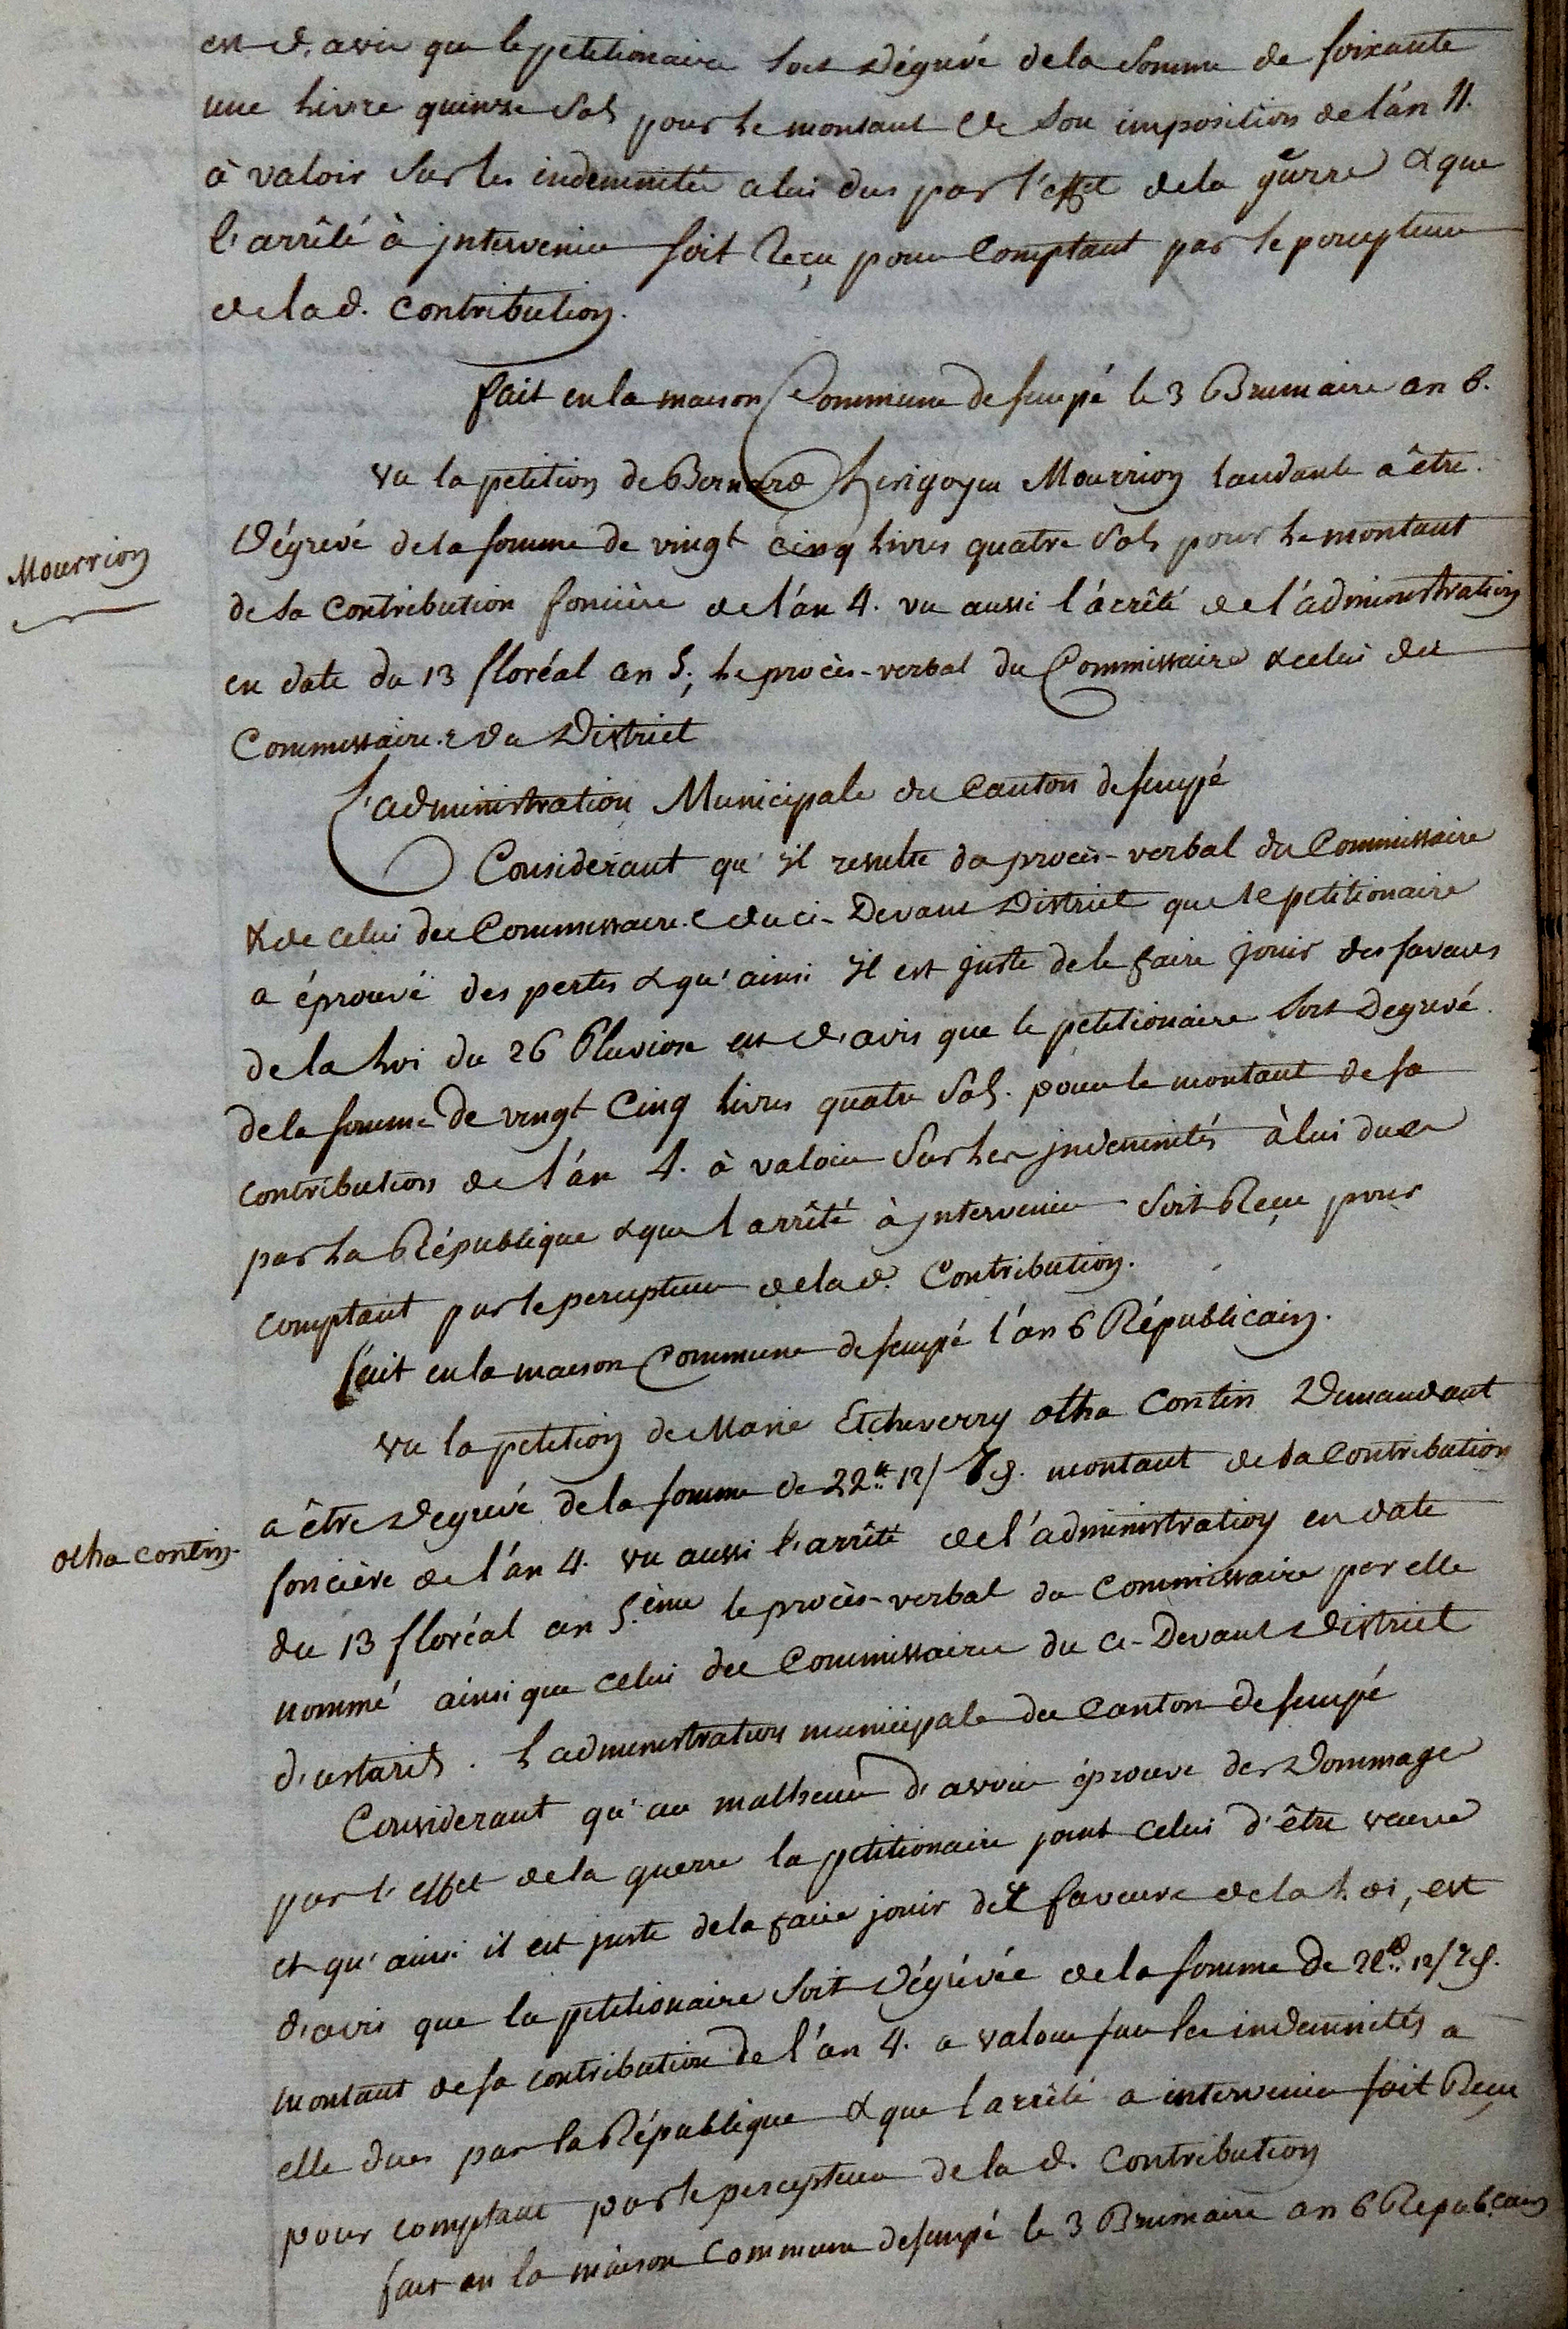 est d'avis que le petitionaire soit dégrévé de la somme de soixante
une livre quinze sols pour le montant de son imposition de l'an 11.
à valoir sur les indemnités à lui dus par l'effet de la guerre & que
l'arrêté à intervenir soit reçu pour comptant par le percepteur
de la d. contribution.
fait en la maison Commune de sempé le 3 Brumaire an 6.
Vu la petition de Bernard Hirigoyen Mourrion tendante a être
Mourrion
Dégrevé de la somme de vingt cinq livres quatre Sols pour le montant
de sa contribution foncière de l'an 4. vu aussi l'arrêté de l'administration
en date du 13 floréal an 5, le procès-verbal du Commissaire & celui du
Commissaire du District
L'administration Municipale du Canton de sempé
Considérant qu'il resulte du procès-verbal du Commissaire
& de celui du Commissaire du ci-Devant District que le petitionaire
a éprouvé des pertes & qu'ainsi il est juste de le faire jouir des faveurs
de la Loi du 26 Pluviose est d'avis que le petitionaire soit Degrevé
de la somme de vingt Cinq livres quatre Sols. pour le montant de sa
contribution de l'an 4. à valoir sur les indemnités à lui dues
par la République & que l'arrêté à intervenir soit Reçu pour
comptant par le percepteur de la d. Contribution.
fait en la maison Commune de sempé l'an 6 Républicain.
Vu la petition de Marie Etcheverry otha Contin Demandant
a être Degrevé de la somme de 22.# 12/ 7 d. montant de sa Contribution
otha contin.
foncière de l'an 4. vu aussi l'arrêté de l'administration en date
du 13 floréal an 5.ème le procès-verbal du Commissaire par elle
nommé ainsi que celui du Commissaire du ci-Devant District
d'ustarits. L'administration municipale du Canton de sempé
Considerant qu'au malheur d'avoir éprouvé des Dommage
par l'effet de la guerre la petitionaire joint celui d'être veuve
et qu'ainsi il est juste de la faire jouir des faveurs de la Loi, est
d'avis que la petitionaire soit Dégrévée de la somme de 22.# 12/ 7 d.
montant de sa contribution de l'an 4. a valoir sur les indemnités a
elle dues par la République & que l'arrêté a intervenir soit Reçu
pour comptant par le percepteur de la d. Contribution
fait en la maison Commune de sempé le 3 Brumaire an 6 Republicain